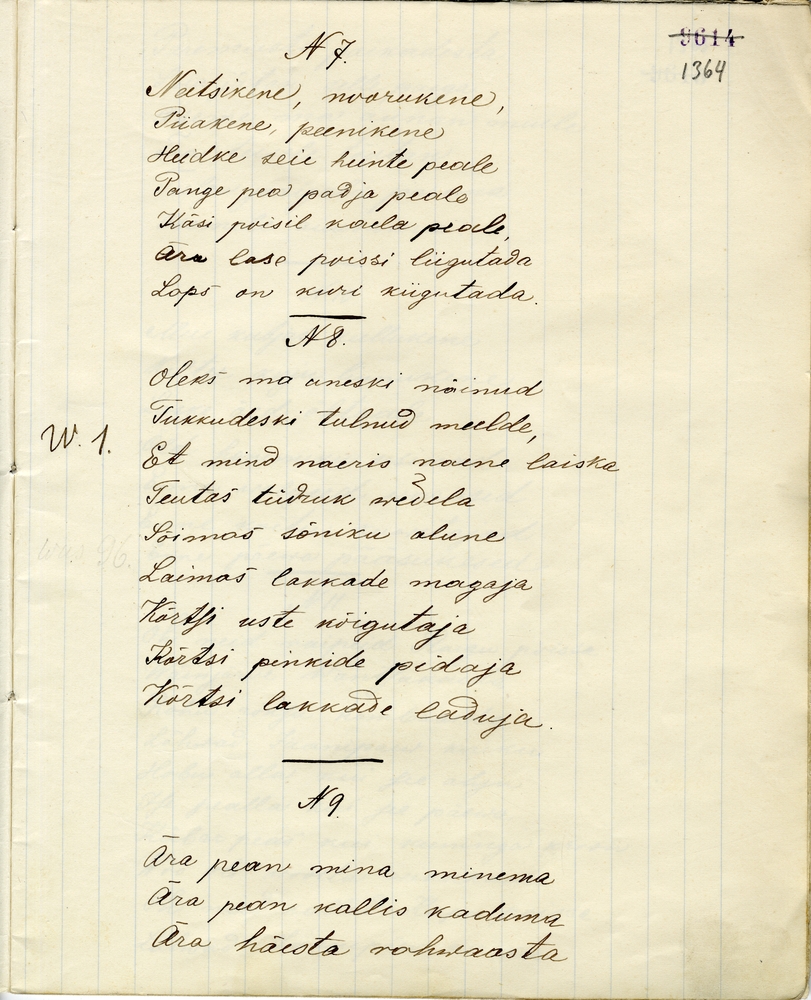 9614
1364
N 7.
Neitsikene, noorukene,
Piiakene, peenikene
Heidke seie heinte peale
Pange pea padja peale
Käsi poisil kaela peale,
Ära lase poissi liigutada
Laps on kuri kiigutada.
N 8.
Oleks ma uneski näinud
Tukkudeski tulnud meelde,
W. 1.
Et mind naeris naene laiska
Teutas tüdruk wedela
Sõimas sõniku alune
Laimas lakkade magaja
Kõrtsi uste kõigutaja
Kõrtsi pinkide pidaja
Kõrtsi lakkade laduja.
N 9.
Ära pean mina minema
Ära pean kallis kaduma
Ära häästa rahwaasta